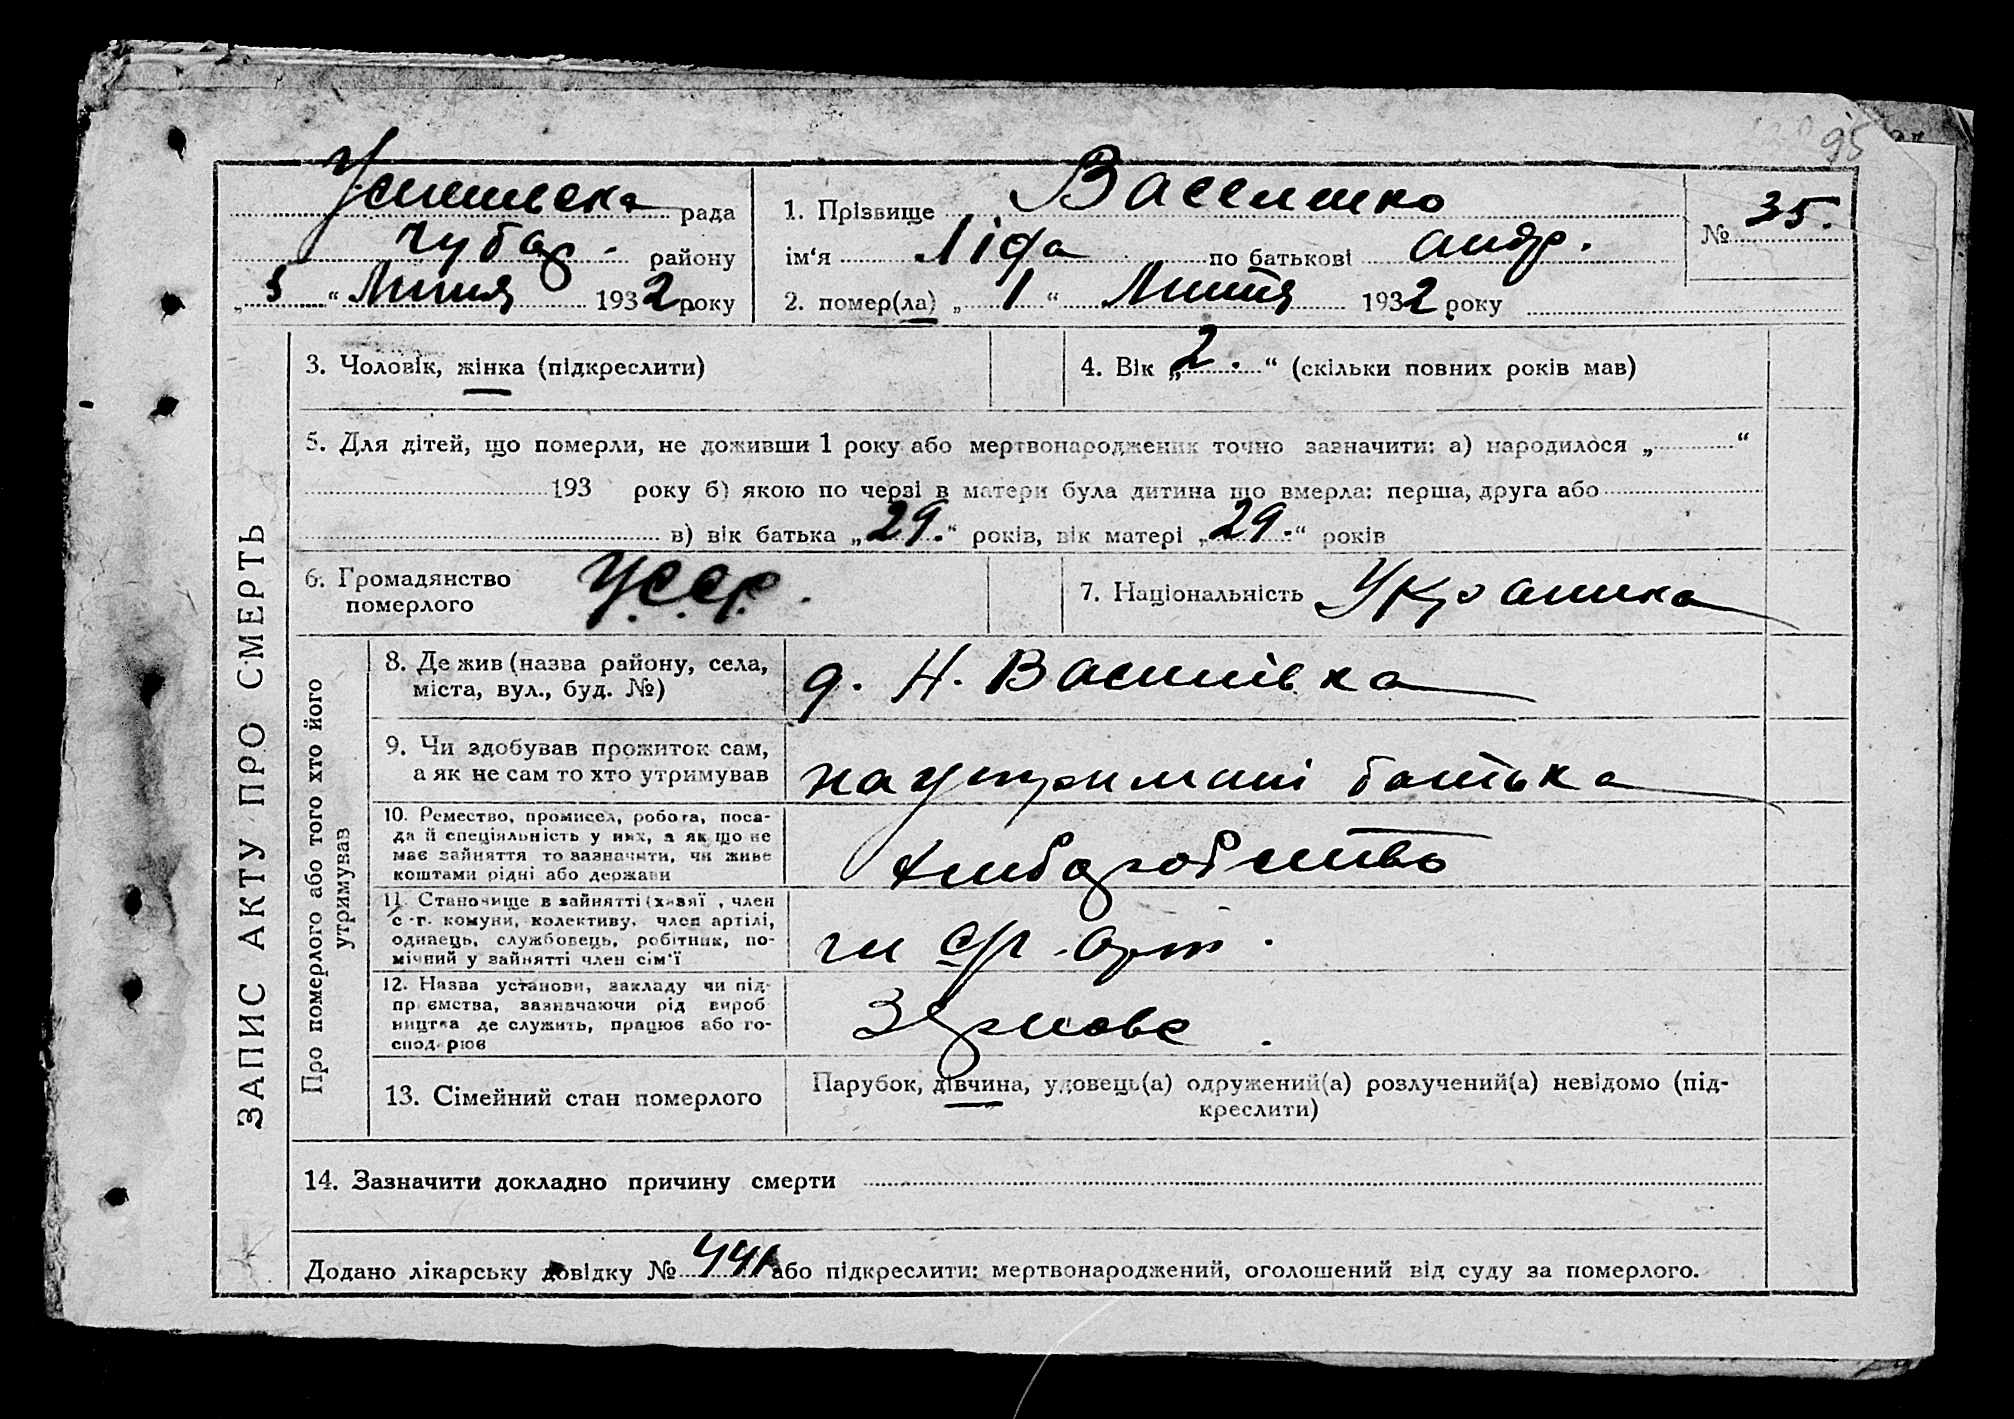 95
рада
Чубар. району
„5“ Липня 1932 року
1. Прізвище Василенко
ім'я Ліда по батькові Андр.
2. помер(ла) „1“ Липня 1932 року
№ 35.
ЗАПИС АКТУ ПРО СМЕРТЬ
3. Чоловік, жінка (підкреслити)
4. Вік „2.“ (скільки повних років мав)
5. Для дітей, що померли, не доживши 1 року або мертвонароджених точно зазначити: а) народилося „ “
193 року б) якою по черзі в матери була дитина що вмерла: перша, друга або
в) вік батька „29.“ років, вік матері „29.“ років
6. Громадянство
померлого
УССР.
7. Національність Українка
Про померлого або того хто його
утримував
8. Де жив (назва району, села,
міста, вул., буд. №)
д. Н. Василівка
9. Чи здобував прожиток сам,
а як не сам то хто утримував
на утриманні батька
10. Ремество, промисел, робота, поса-
да й спеціяльність у них, а якщо не
має зайняття то зазначити, чи живе
коштами рідні або держави
Хлібаробство
11. Становище в зайнятті (хазяї , член
с.-г. комуни, колективу, член артілі,
одинець, службовець, робітник, по-
мічний у зайнятті член сім'ї
чл с/г. арт.
12. Назва установи, закладу чи під-
приємства, зазначаючи рід вироб-
ництва де служить, працює або го-
сподарює
Зернова.
13. Сімейний стан померлого
Парубок, дівчина, удовець(а) одружений(а) розлучений(а) невідомо (під-
креслити)
14. Зазначити докладно причину смерти
Додано лікарську довідку № 441 або підкреслити: мертвонароджений, оголошений від суду за померлого.